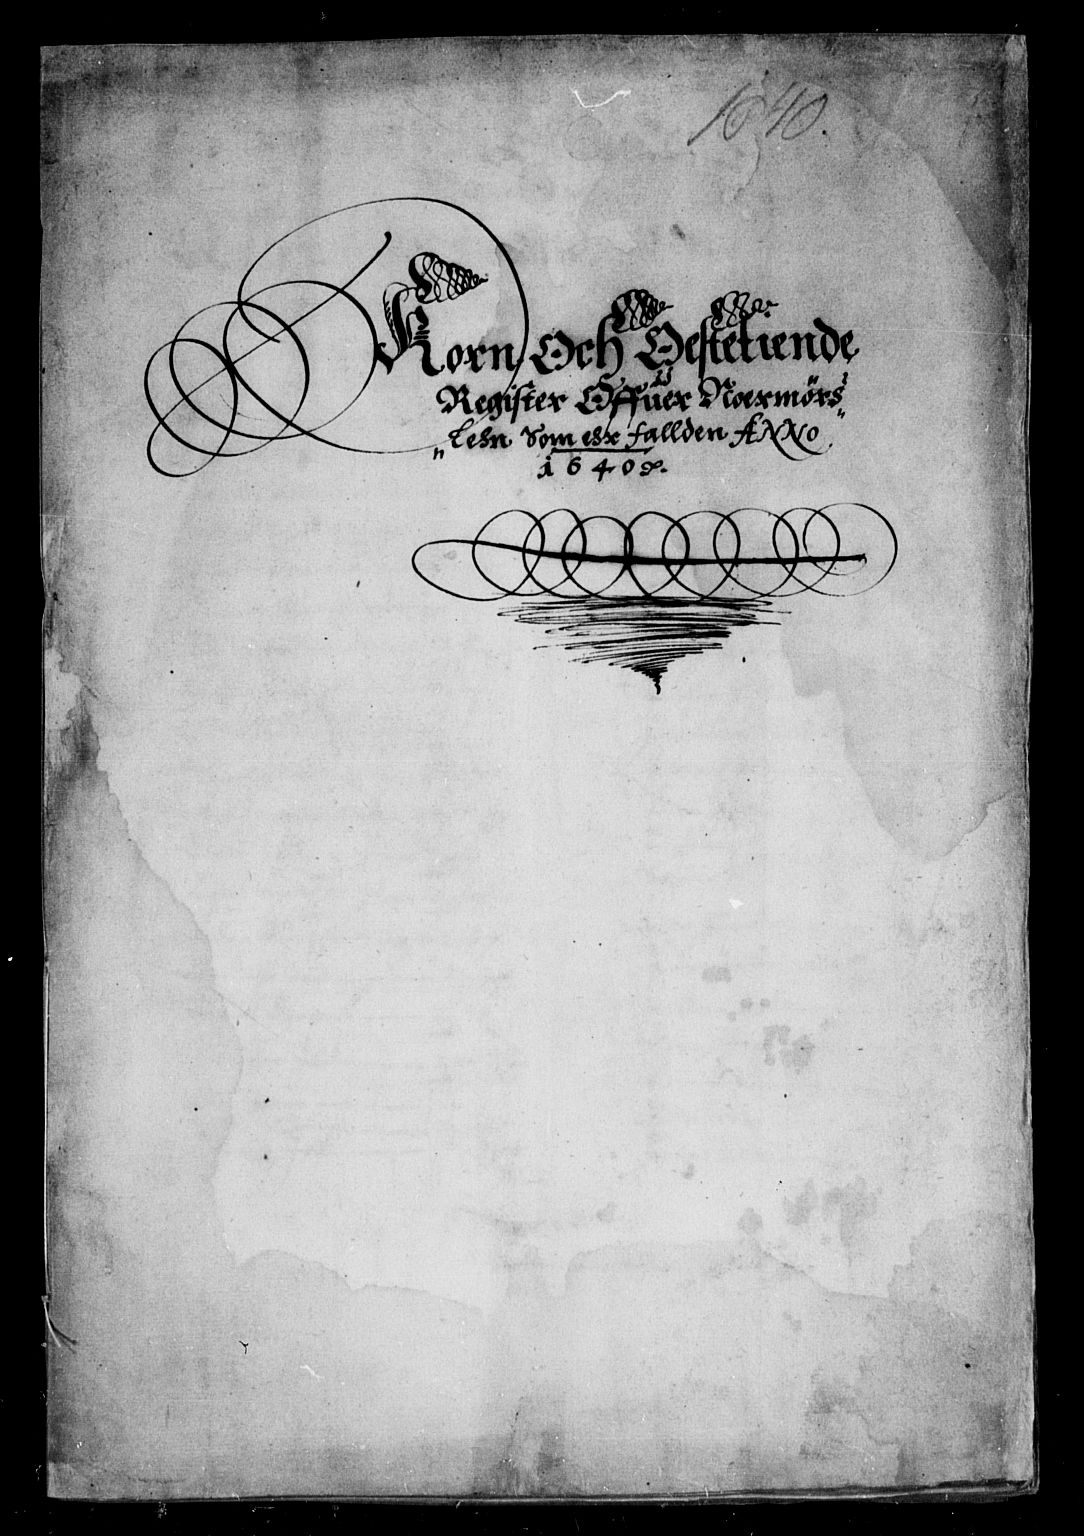 1640.
Korn Och Oestetiende
Register Offuer Noermörs
Lehn Som ehr fallden ANNO
1640